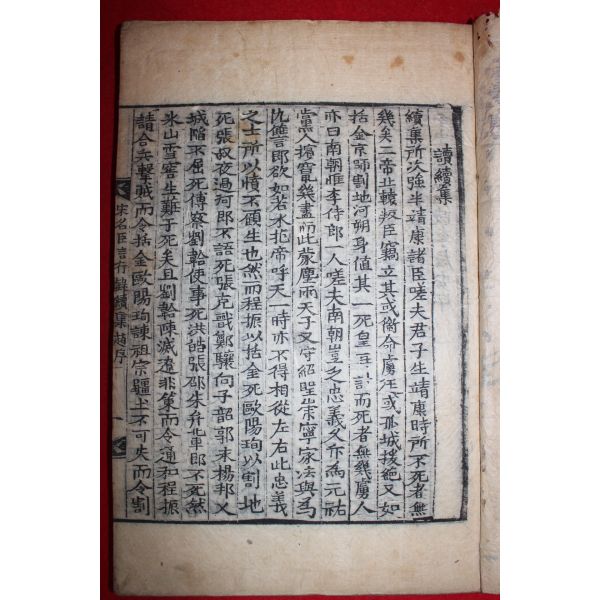 讀續集
續集所次强半靖康諸臣嗟夫君子生靖康時所不死者無
幾矣二帝北轅叛臣竊立其或銜命虜汪或孤城援絕又如
括金京師割地河朔身值其一死皇五計而死者無幾虜人
亦曰南朝惟李侍郎一人嗟夫南朝豈乏忠義久斥爲元祐
黨人擯竄幾盡而此蒙塵兩天子又守紹聖崇寧家法與爲
仇讐郎欲如若木牝帝呼天一時亦不得相從左右此忠義
之士所以憤不顧生也然而程振以括金死歐陽珣以割地
死張叔夜過河郎不語死張克戩鄭驤向子韶郭永楊邦乂
城陷不屈死傅察劉韐使事死洪皓張邵朱弁北車郎不死然
氷山雪窖生難于死矣且劉韐陳滅遼非策而令運和程振
請合兵擊賊而令括金歐陽珣諫祖宗疆土不可失而令割
宋名臣言行錄續集趙序
一